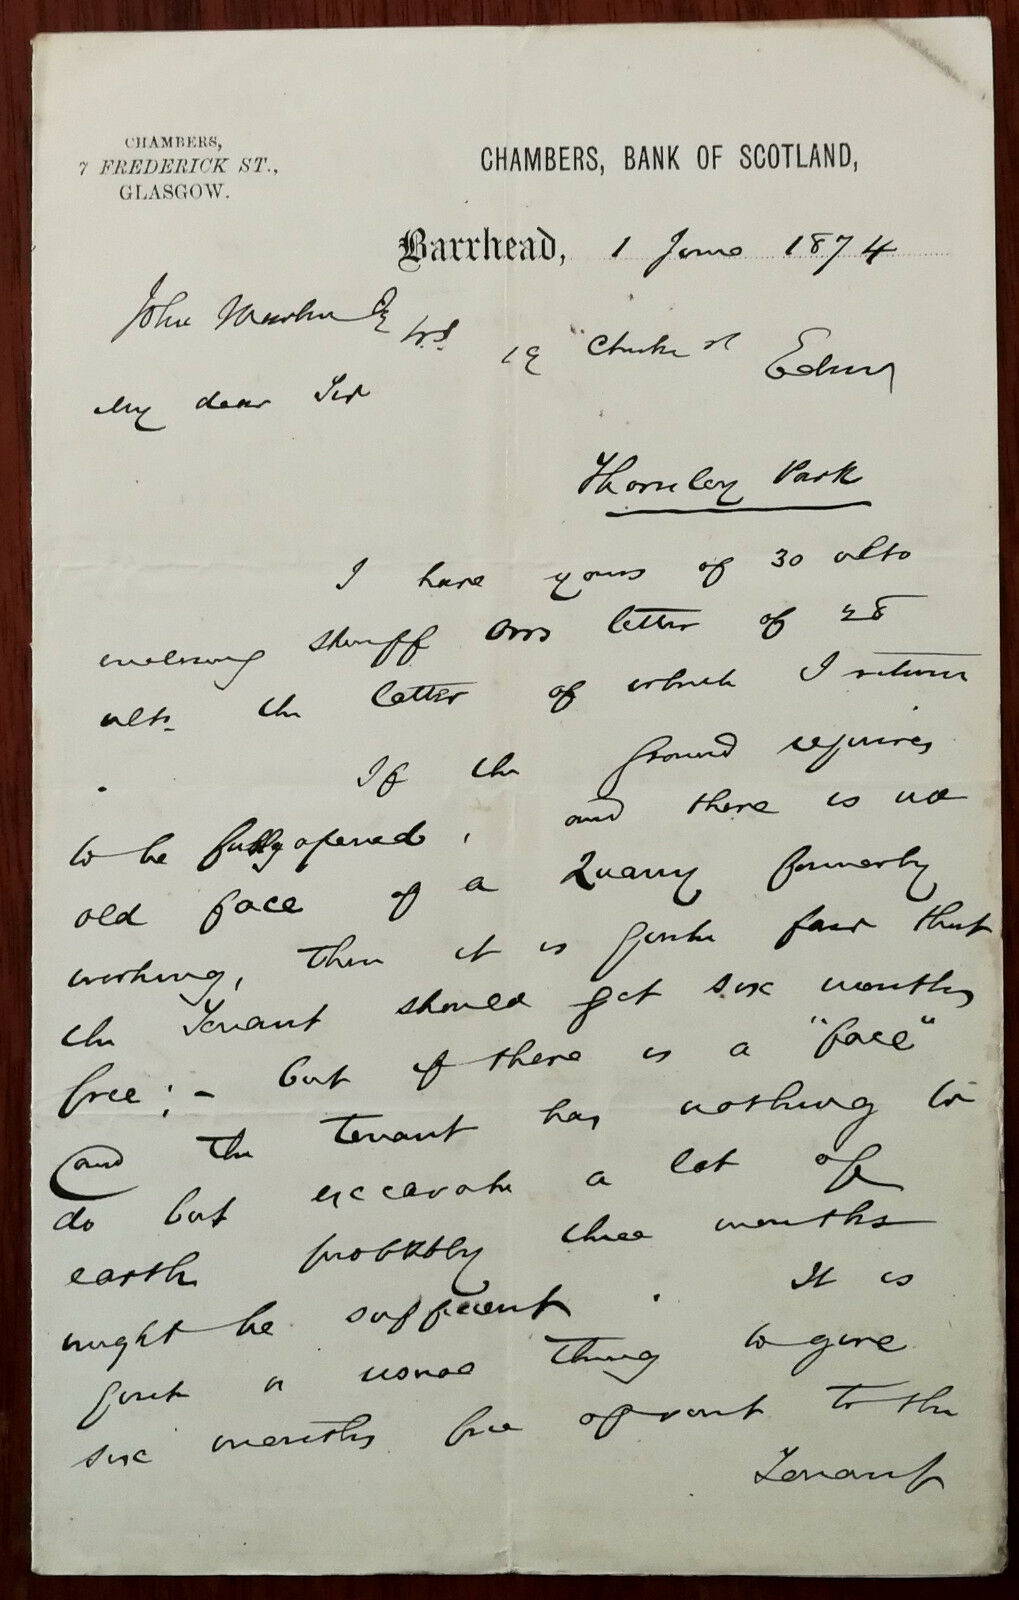 CHAMBERS,
7 FREDERICK ST.,
GLASGOW.
CHAMBERS, BANK OF SCOTLAND,
Barrhead, 1 June 1874
John Esq W.S. 19 st Edinr
My dear Sir
Thornley Park
I have yours of 30 ulto
enclosing letter of 28
ulto. the letter of which I return
. If the ground requires
to be fully opened, and there is no
old face of a Quarry formerly
working, then it is quite fair that
the Tenant should get six months
free; - but if there is a "face"
and the tenant has nothing to
do but excavate a lot of
earth probably three months
might be sufficient. It is
quite a usual thing to give
six months free of rent to the
Tenant